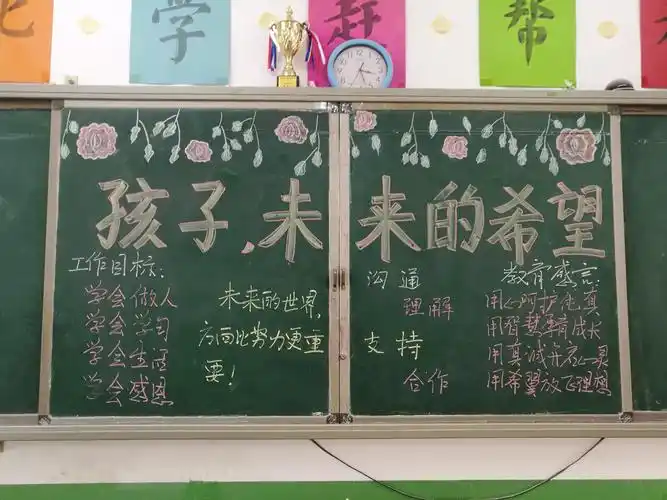 学
赶
帮
孩子、未来的希望
工作目标:
学会做人
学会学习
学会生活
学会感恩
未来的世界,
方向比努力更重
要!
沟通
理解
支持
合作
教育感言
用心呵护纯真
用智慧孕育成长
用真诚开启心灵
用希冀放飞理想